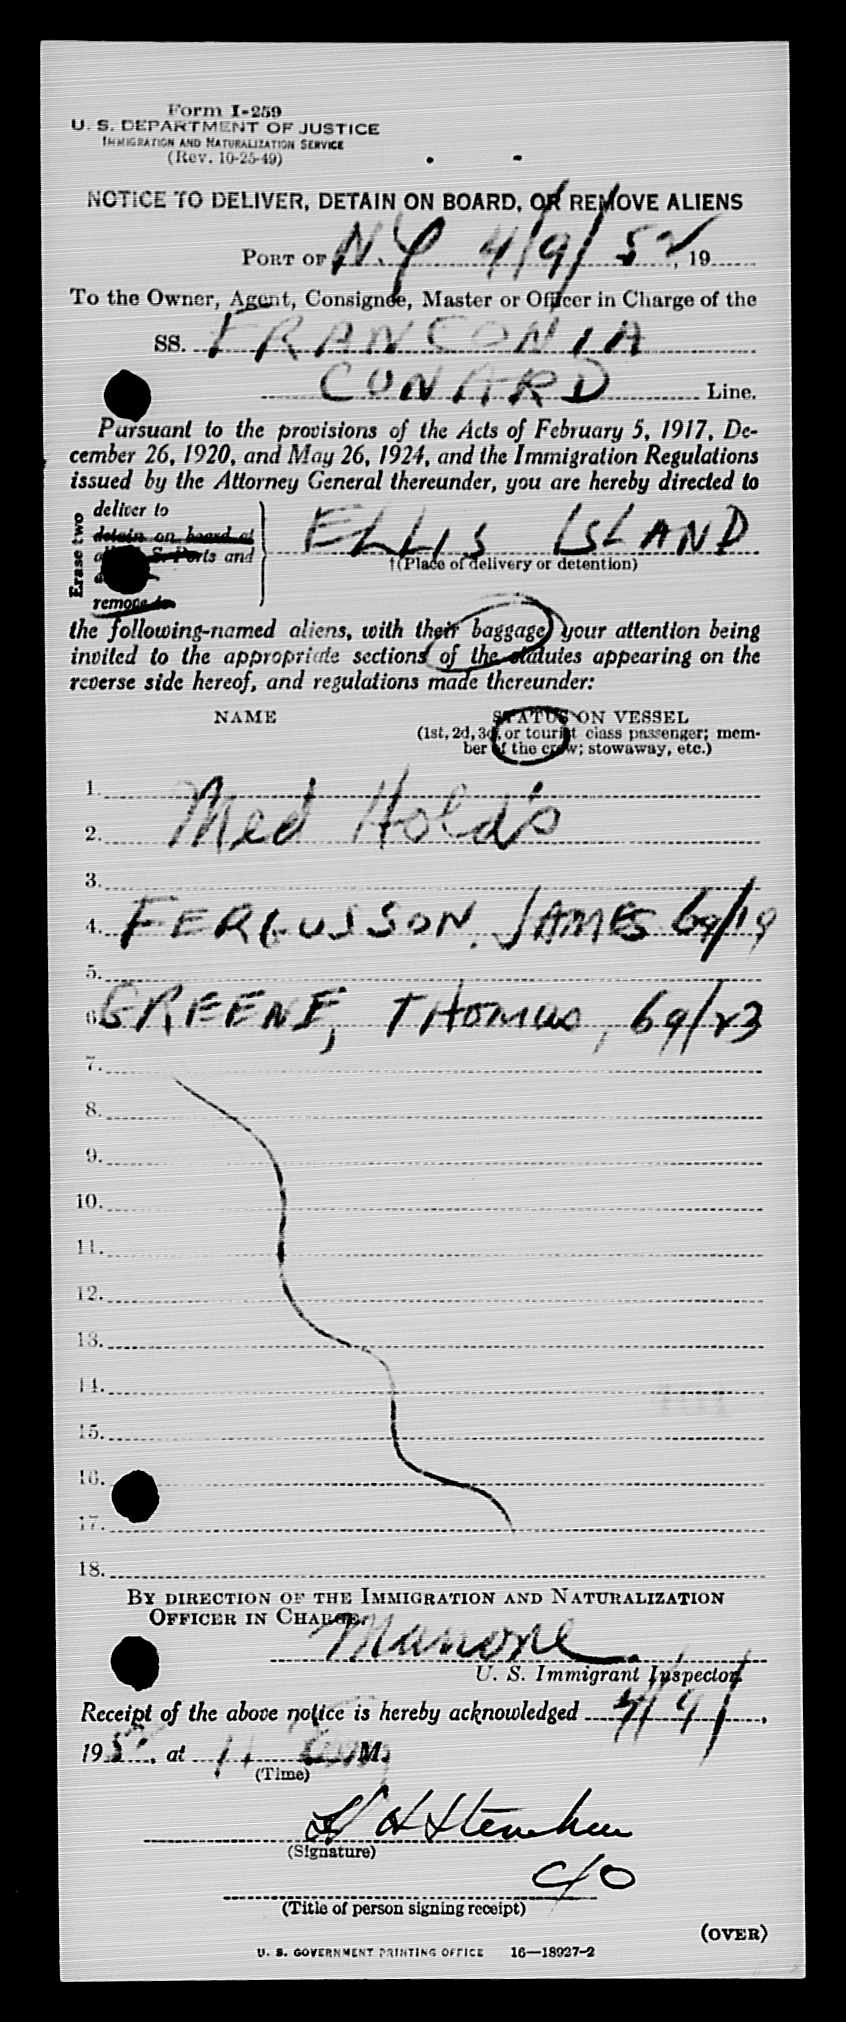 Form I-259
U. S. DEPARTMENT OF JUSTICE
IMMIGRATION AND NATURALIZATION SERVICE
(Rev. 10-25-49)
NOTICE TO DELIVER, DETAIN ON BOARD, OR REMOVE ALIENS
PORT OF N.Y 4/9/52, 19
To the Owner, Agent, Consignee, Master or Officer in Charge of the
SS. FRANCONIA
CUNARD Line.
Pursuant to the provisions of the Acts of February 5, 1917, De-
cember 26, 1920, and May 26, 1924, and the Immigration Regulations
issued by the Attorney General thereunder, you are hereby directed to
Erase two
deliver to
detain on board at
S. Ports and
remove to
ELLIS ISLAND
†(Place of delivery or detention)
the following-named aliens, with their baggage, your attention being
invited to the appropriate sections of the statutes appearing on the
reverse side hereof, and regulations made thereunder:
NAME STATUS ON VESSEL
(1st, 2d, 3d, or tourist class passenger; mem-
ber of the crew; stowaway, etc.)
1.
2. Med Hold's
3.
4. FERGUSSON, JAMES 69/19
5.
6. GREENE, THOMAS, 69/23
7.
8.
9.
10.
11.
12.
13.
14.
15.
16.
17.
18.
BY DIRECTION OF THE IMMIGRATION AND NATURALIZATION
OFFICER IN CHARGE,
U. S. Immigrant Inspector.
Receipt of the above notice is hereby acknowledged 4/9/,
195, at 11 M.
(Time)
(Signature)
C/O
(Title of person signing receipt)
(OVER)
U. S. GOVERNMENT PRINTING OFFICE 16—18927-2